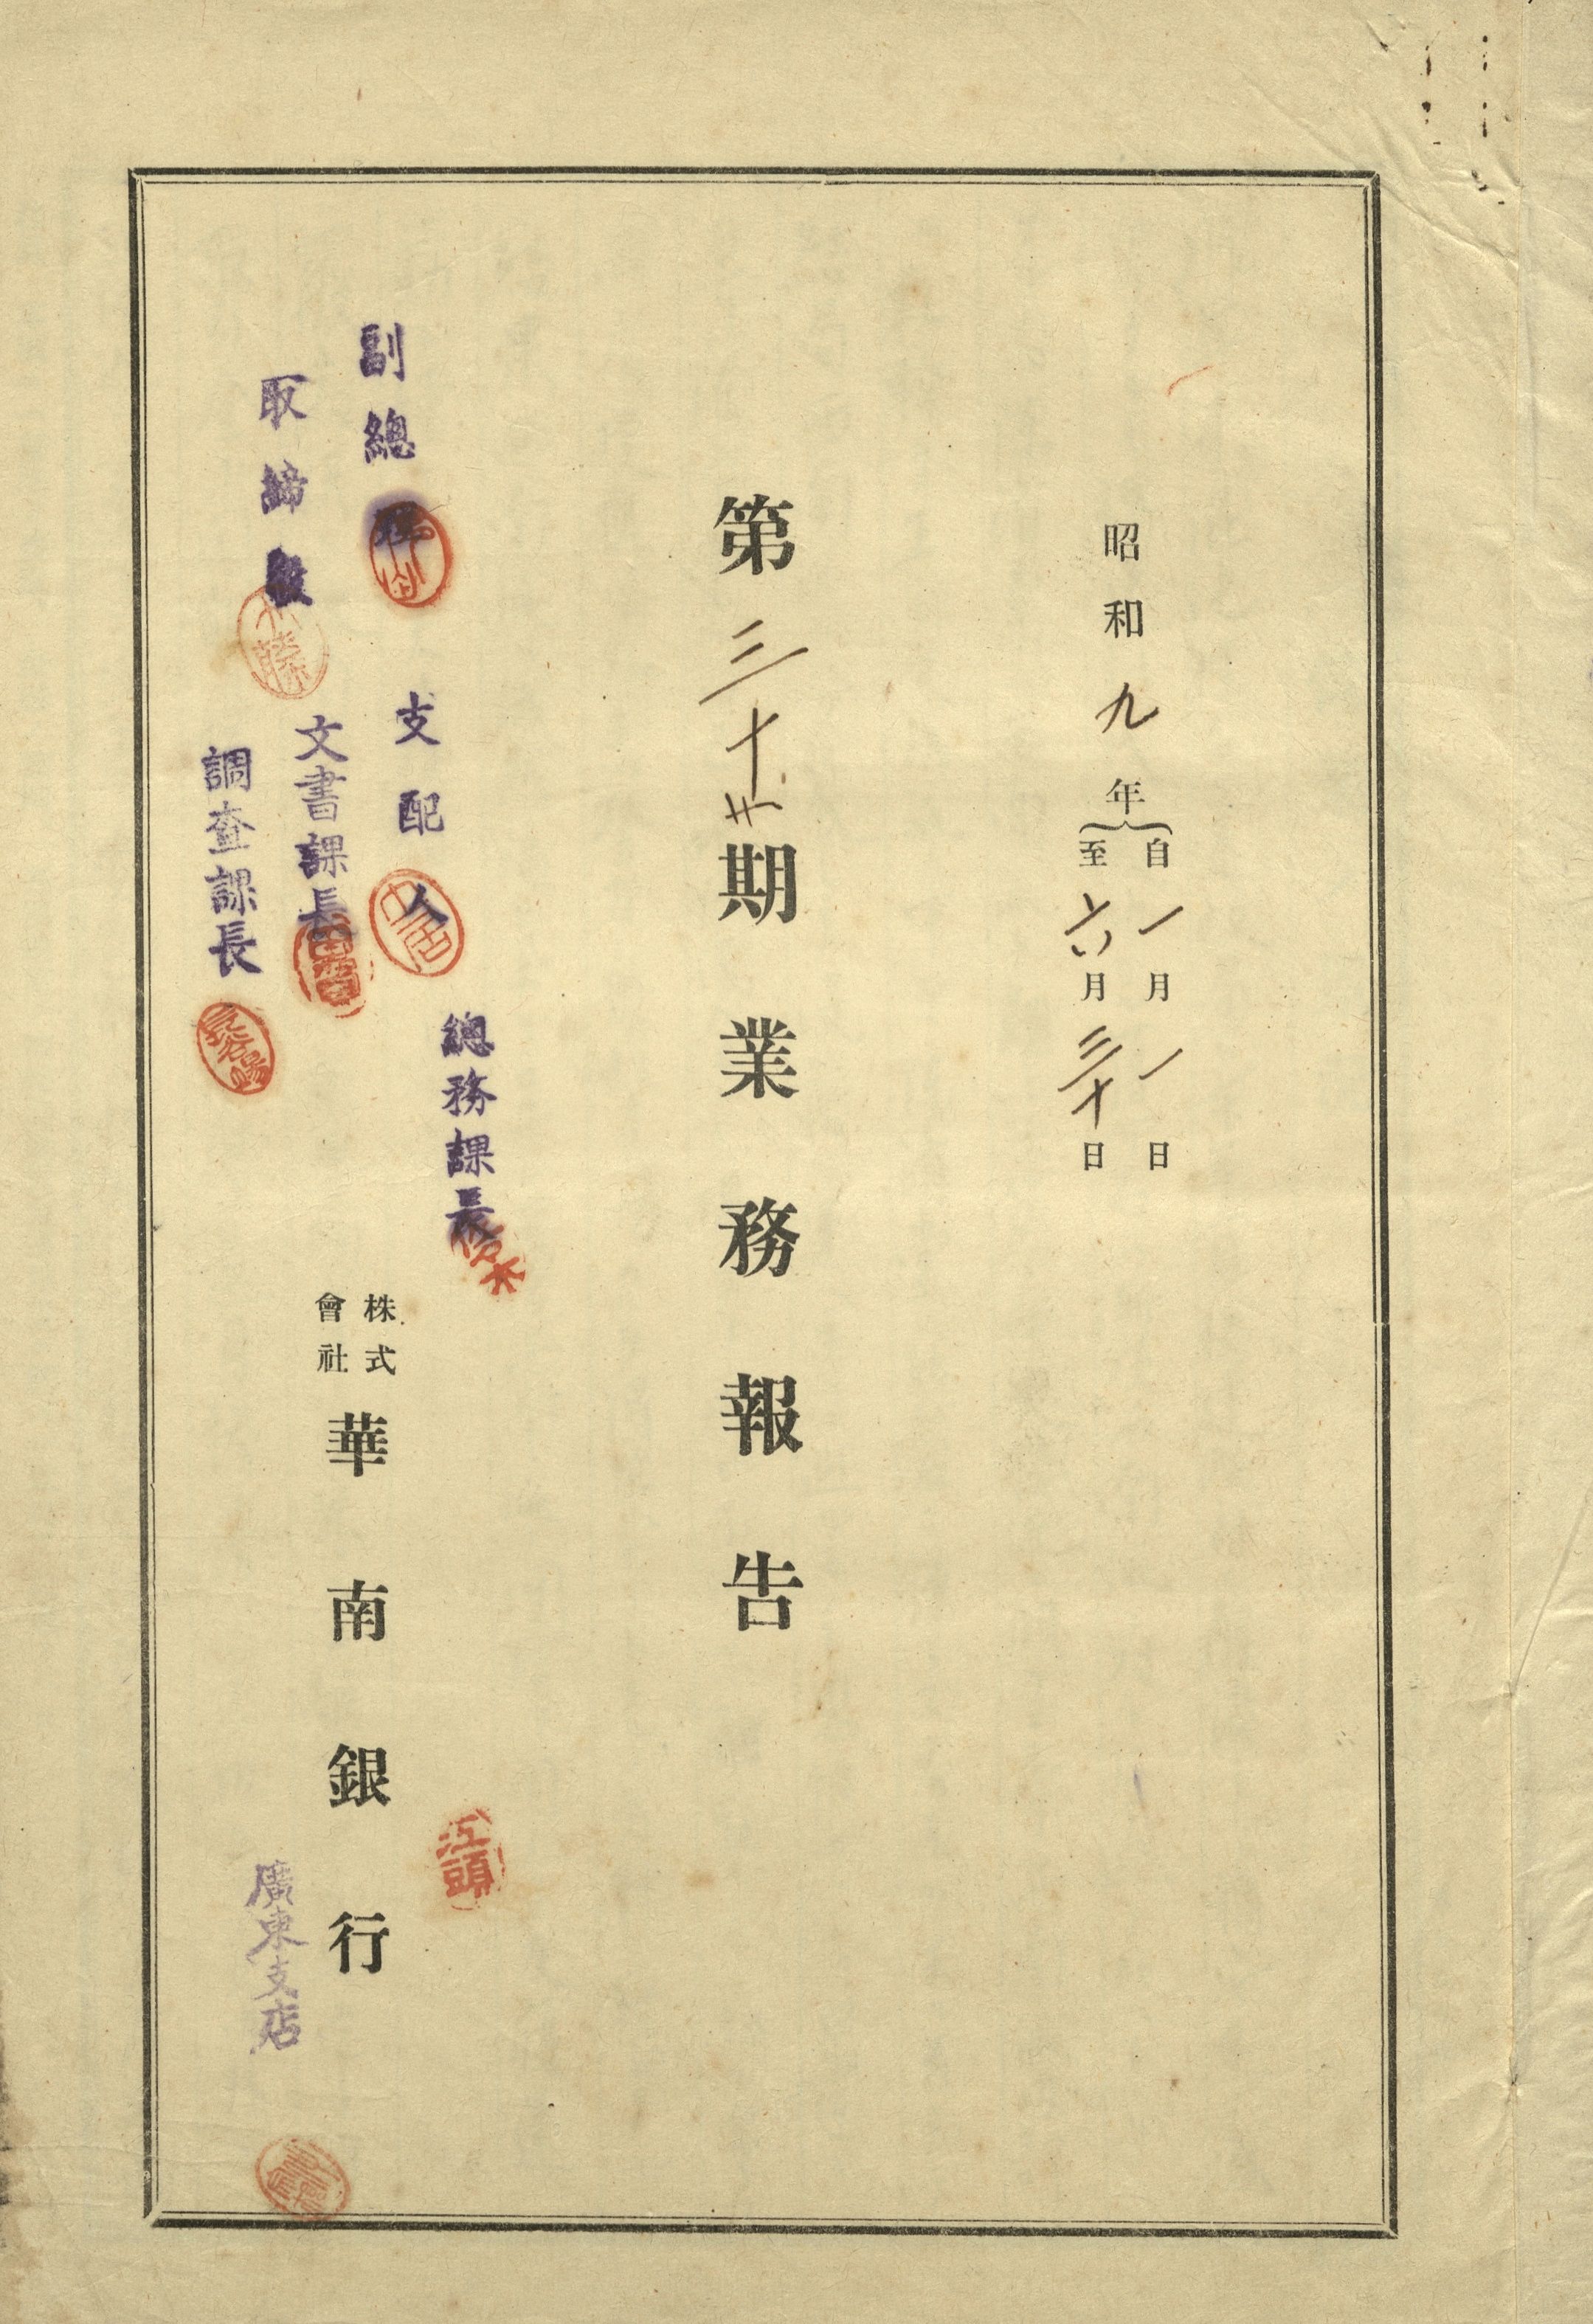 昭和九年
自一月一日
至六月三十日
第三十期業務報告
總務課長
支配人
副總理
文書課長
取締役
調查課長
株式
會社
華南銀行
江頭
廣東支店